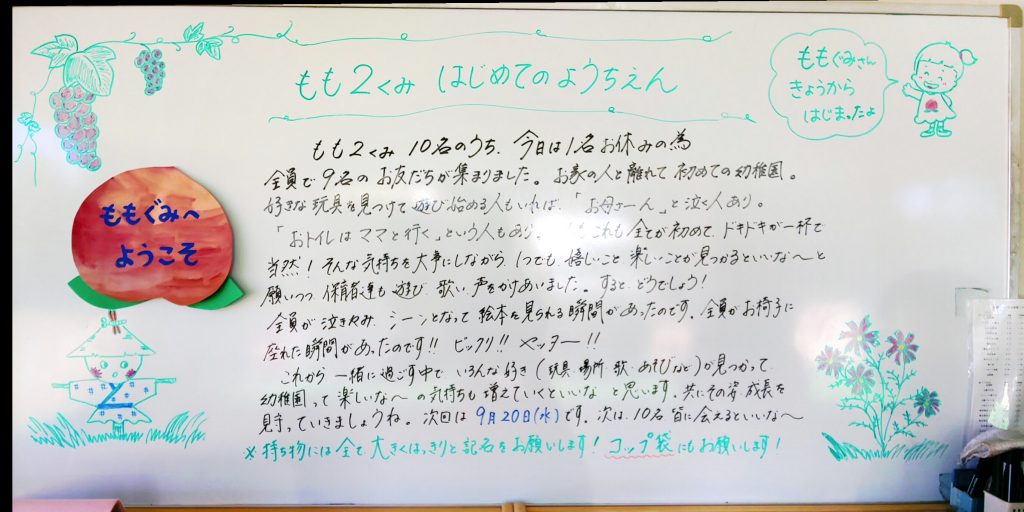 もも2くみ はじめてのようちえん
ももぐみさん
きょうから
はじまったよ
ももぐみへ
ようこそ
もも2くみ 10名のうち、今日は1名お休みの為
全員で9名のお友だちが集まりました。お家の人と離れて初めての幼稚園。
好きな玩具を見つけて遊び始める人もいれば、「お母さーん」と泣く人あり。
「おトイレはママと行く」という人もあり。 もこれも全てが初めて、ドキドキが一杯で
当然!そんな気持ちを大事にしながら、1つでも嬉しいこと楽しいことが見つかるといいな〜と
願いつつ、保育者達も遊び、歌い、声をかけあいました。すると、どうでしょう!
全員が泣き止み、シーンとなって絵本を見られる瞬間があったのです。全員がお椅子に
座れた瞬間があったのです!! ビックリ!! ヤッター!!
これから一緒に過ごす中で、いろんな好き(玩具、場所、歌、あそびなど)が見つかって、
幼稚園って楽しいな〜の気持ちも増えていくといいなと思います。共にその姿、成長を
見守っていきましょうね。次回は9月20日(水)です。次は、10名皆に会えるといいな〜
※持ち物には全て、大きくはっきりと記名をお願いします!コップ袋にもお願いします!